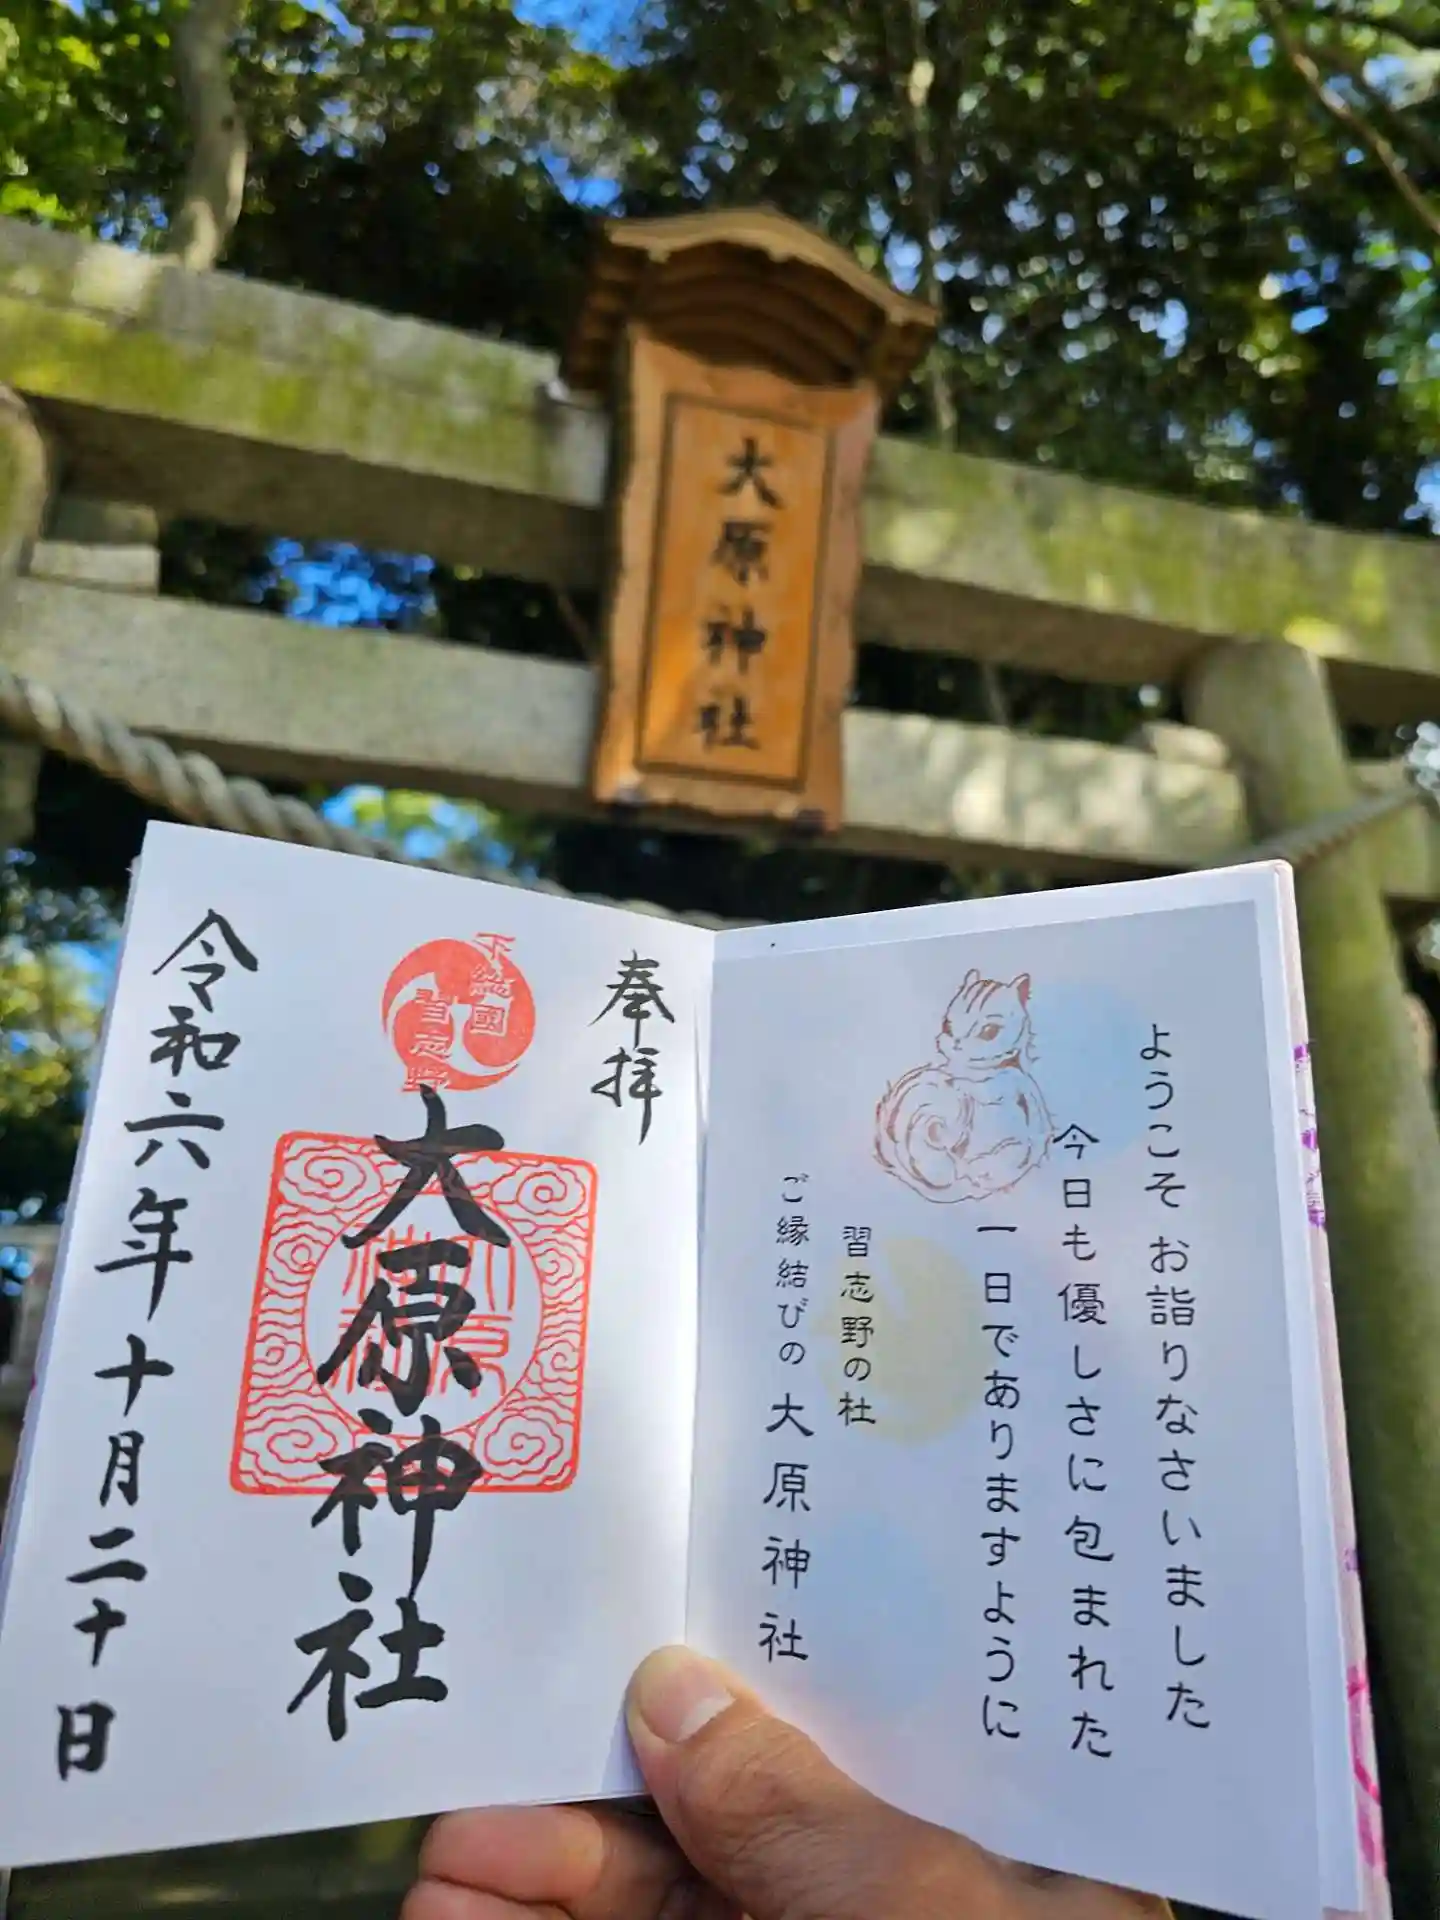 大原神社
ようこそ お詣りなさいました
今日も優しさに包まれた
一日でありますように
習志野の杜
ご縁結びの大原神社
奉拝
下総國
習志野
大原神社
大原神社
令和六年十月二十日